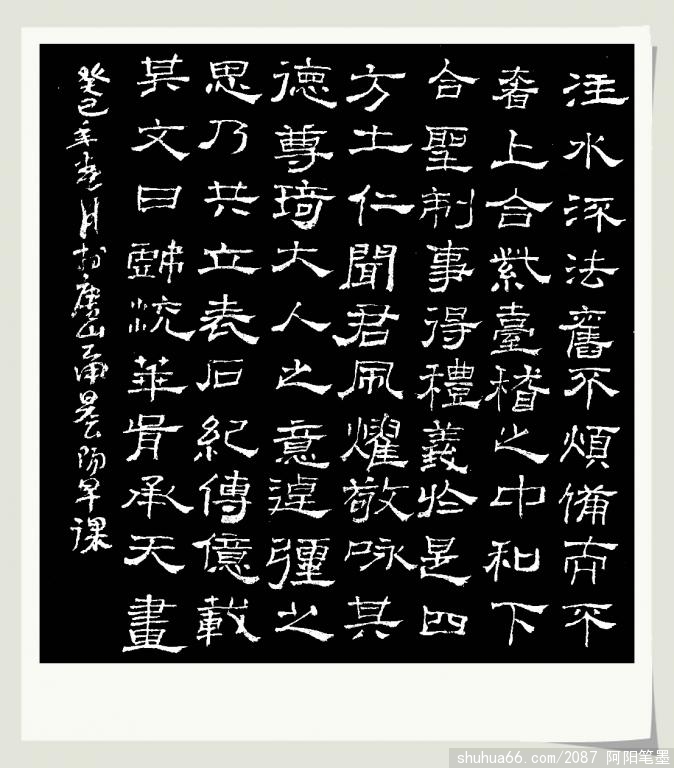 注水流法舊不煩備而不
奢上合紫臺稽之中和下
合聖制事得禮義於是四
方土仁聞君風燿敬咏其
德尊琦大人之意逴彌之
思乃共立表石紀傳億載
其文曰戲統華胥承天畫
癸巳年月於唐山阳早課
shuhua66.com/2087 阿阳笔墨